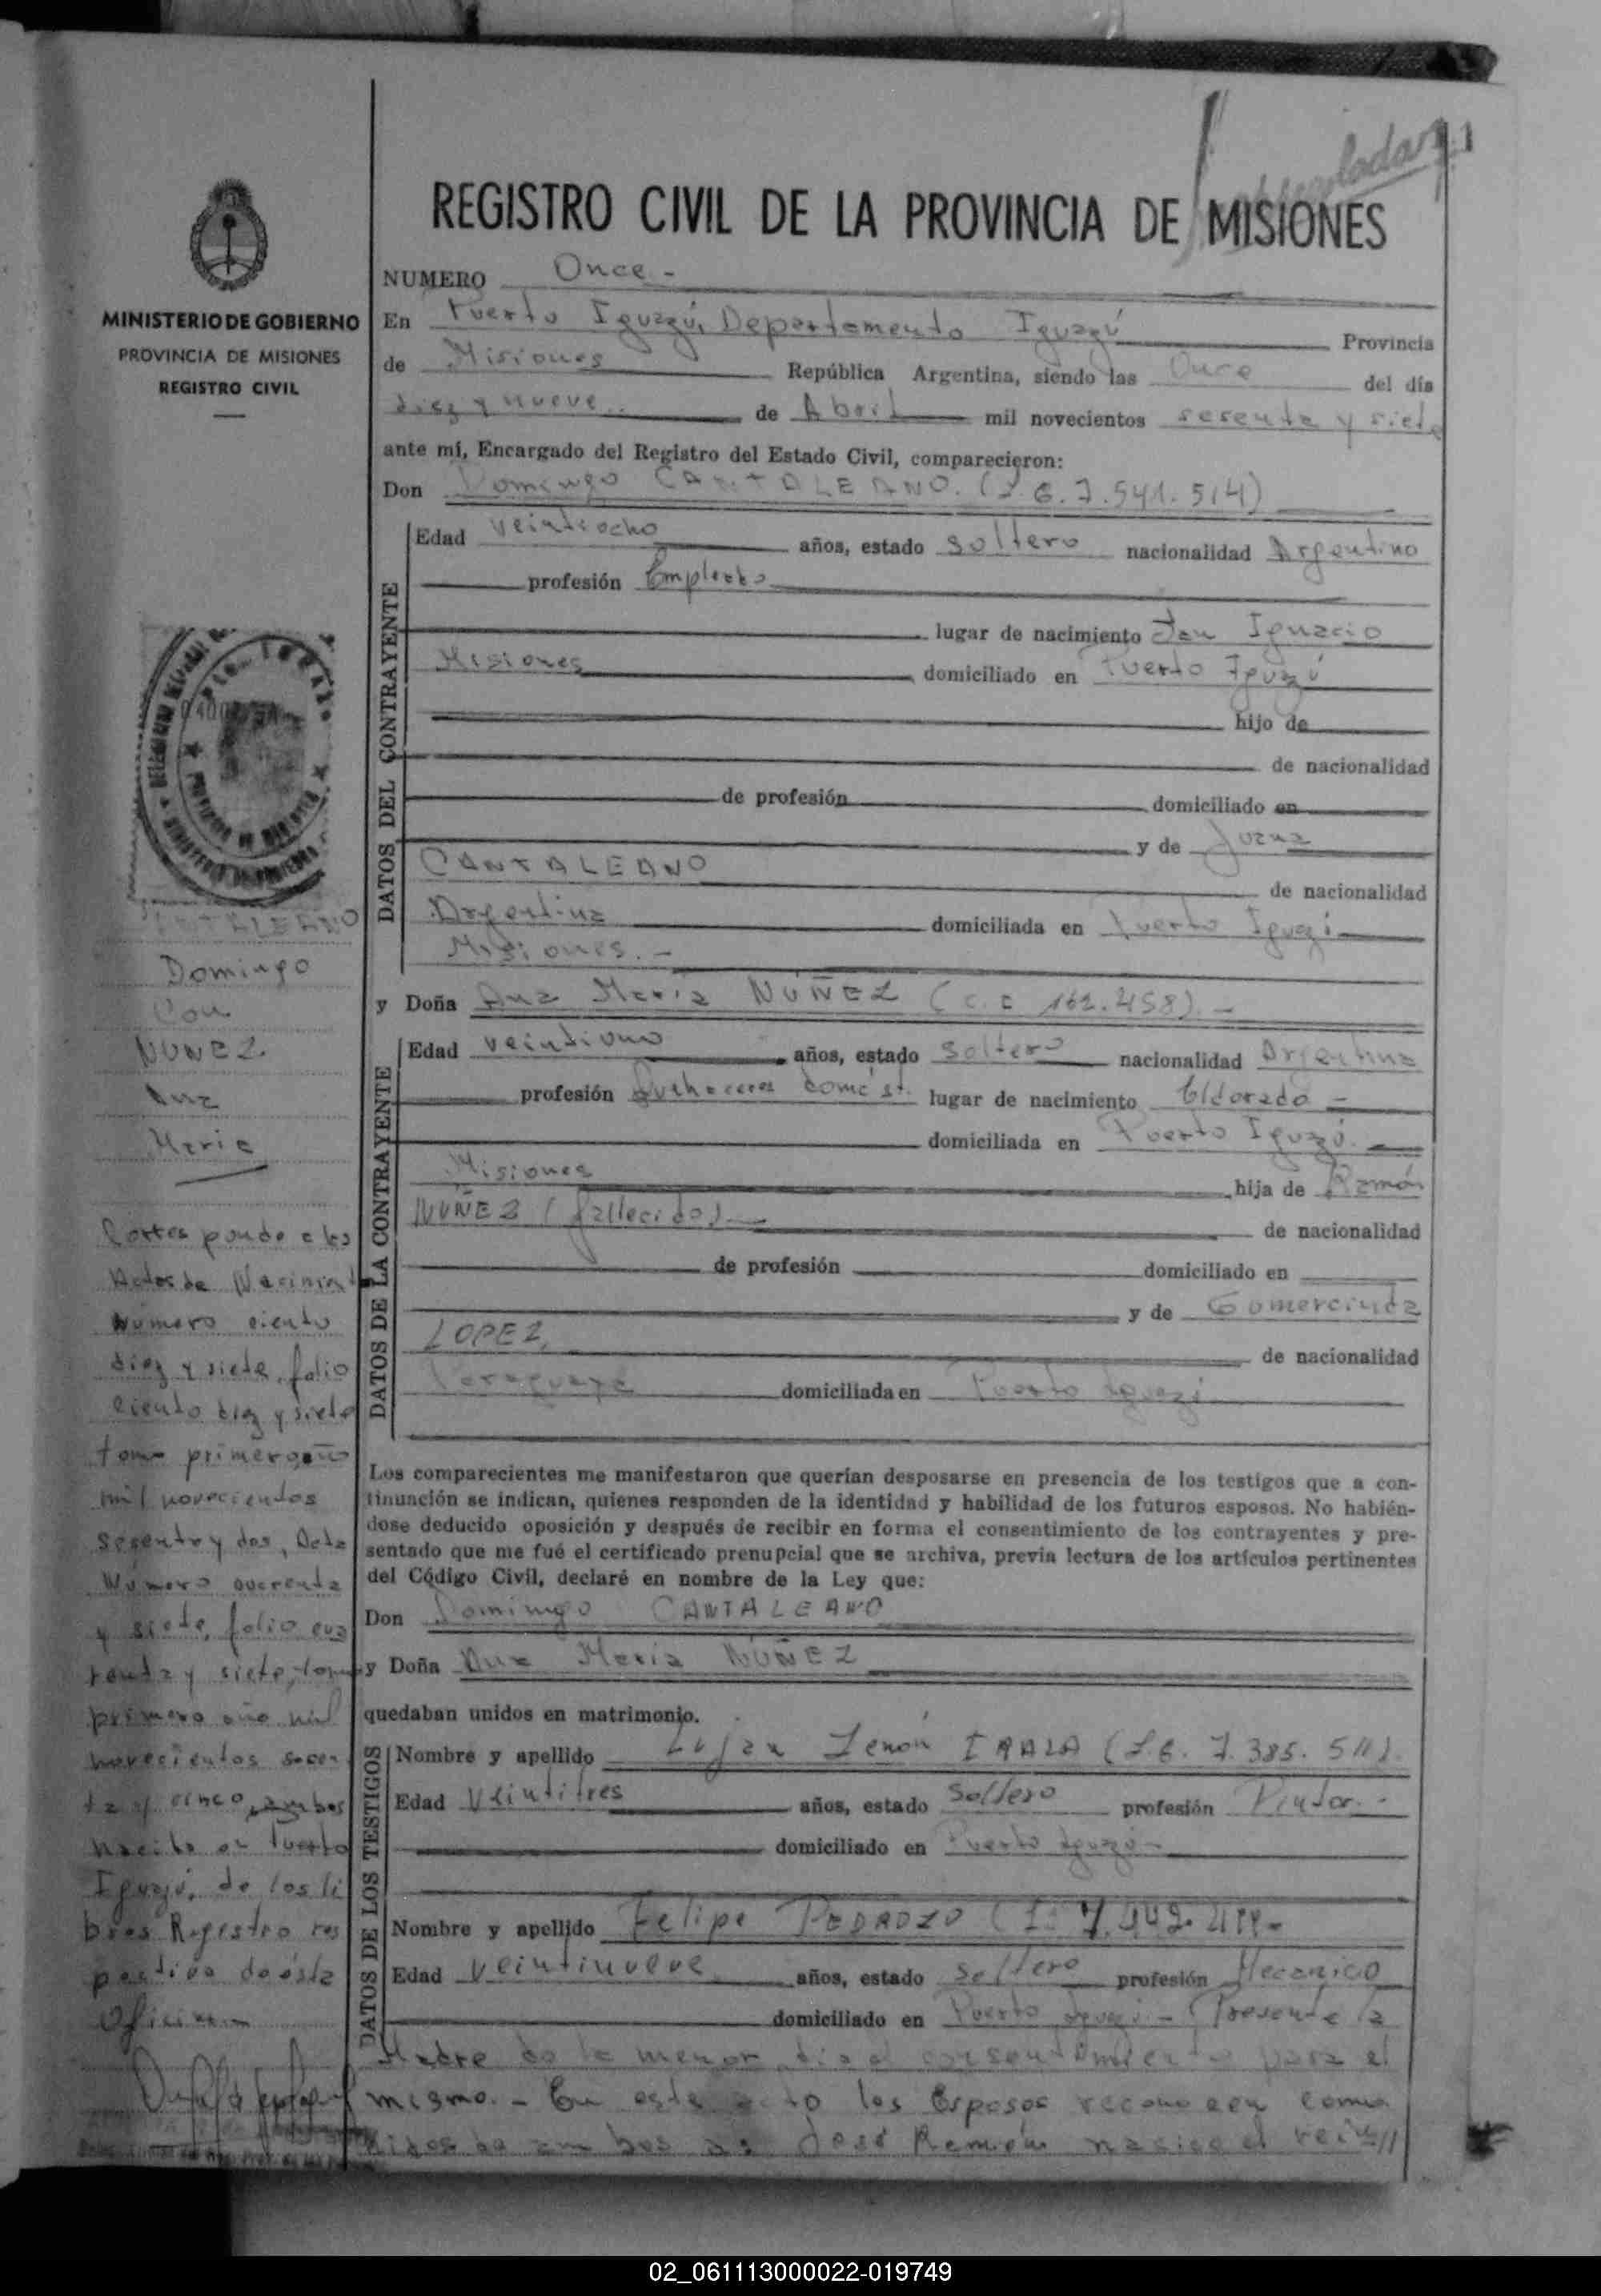 REGISTRO CIVIL DE LA PROVINCIA DE MISIONES
MINISTERIO DE GOBIERNO
PROVINCIA DE MISIONES
REGISTRO CIVIL
NUMERO Once.-
En Puerto Iguazú, Departamento Iguazú Provincia
de Misiones República Argentina, siendo las Once del día
diez y nueve.. de Abril mil novecientos sesenta y siete
ante mí, Encargado del Registro del Estado Civil, comparecieron:
Don Domingo CANTALEANO. (L.E. 7.541.514)
DATOS DEL CONTRAYENTE
Edad veintiocho años, estado soltero nacionalidad Argentino
profesión Empleado
lugar de nacimiento San Ignacio
Misiones domiciliado en Puerto Iguazú
hijo de
de nacionalidad
de profesión domiciliado en
y de Juana
CANTALEANO de nacionalidad
Argentina domiciliada en Puerto Iguazú
Misiones.-
y Doña Ana María NUÑEZ (C.I 162.458).-
DATOS DE LA CONTRAYENTE
Edad veintiuno años, estado soltero nacionalidad Argentina
profesión Quehaceres domést. lugar de nacimiento Eldorado -
domiciliada en Puerto Iguazú.
Misiones hija de Ramón
NUÑEZ (fallecido).- de nacionalidad
de profesión domiciliado en
y de Gomercinda
LOPEZ, de nacionalidad
Paraguaya domiciliada en Puerto Iguazú
Los comparecientes me manifestaron que querían desposarse en presencia de los testigos que a con-
tinuación se indican, quienes responden de la identidad y habilidad de los futuros esposos. No habién-
dose deducido oposición y después de recibir en forma el consentimiento de los contrayentes y pre-
sentado que me fué el certificado prenupcial que se archiva, previa lectura de los artículos pertinentes
del Código Civil, declaré en nombre de la Ley que:
Don Domingo CANTALEANO
y Doña Ana María NUÑEZ
quedaban unidos en matrimonio.
DATOS DE LOS TESTIGOS
Nombre y apellido Lujan Zenón IRALA (L.E. 7.385.511).
Edad Veintitres años, estado Soltero profesión Pintor.-
domiciliado en Puerto Iguazú-
Nombre y apellido Felipe PEDROZO
Edad Veintinueve años, estado soltero profesión Mecánico
domiciliado en Puerto Iguazú.- (Presente la
Madre de la menor dió el consentimiento para el
mismo.- En este acto los Esposos reconocen como
hijos de ambos a: José Ramón nacido el vein//
CANTALEANO
Domingo
Con
NUÑEZ.
Ana
María
Corresponde a las
Actas de Nacimient
Número ciento
diez y siete, folio
ciento diez y siete
tomo primero año
mil novecientos
sesenta y dos, Acta
Número cuarenta
y siete, folio cua
renta y siete, tomo
primero año mil
novecientos sesen
ta y cinco, ambos
nacido en Puerto
Iguazú, de los li
bros Registro res
pectivo de ésta
Oficina
02_061113000022-019749